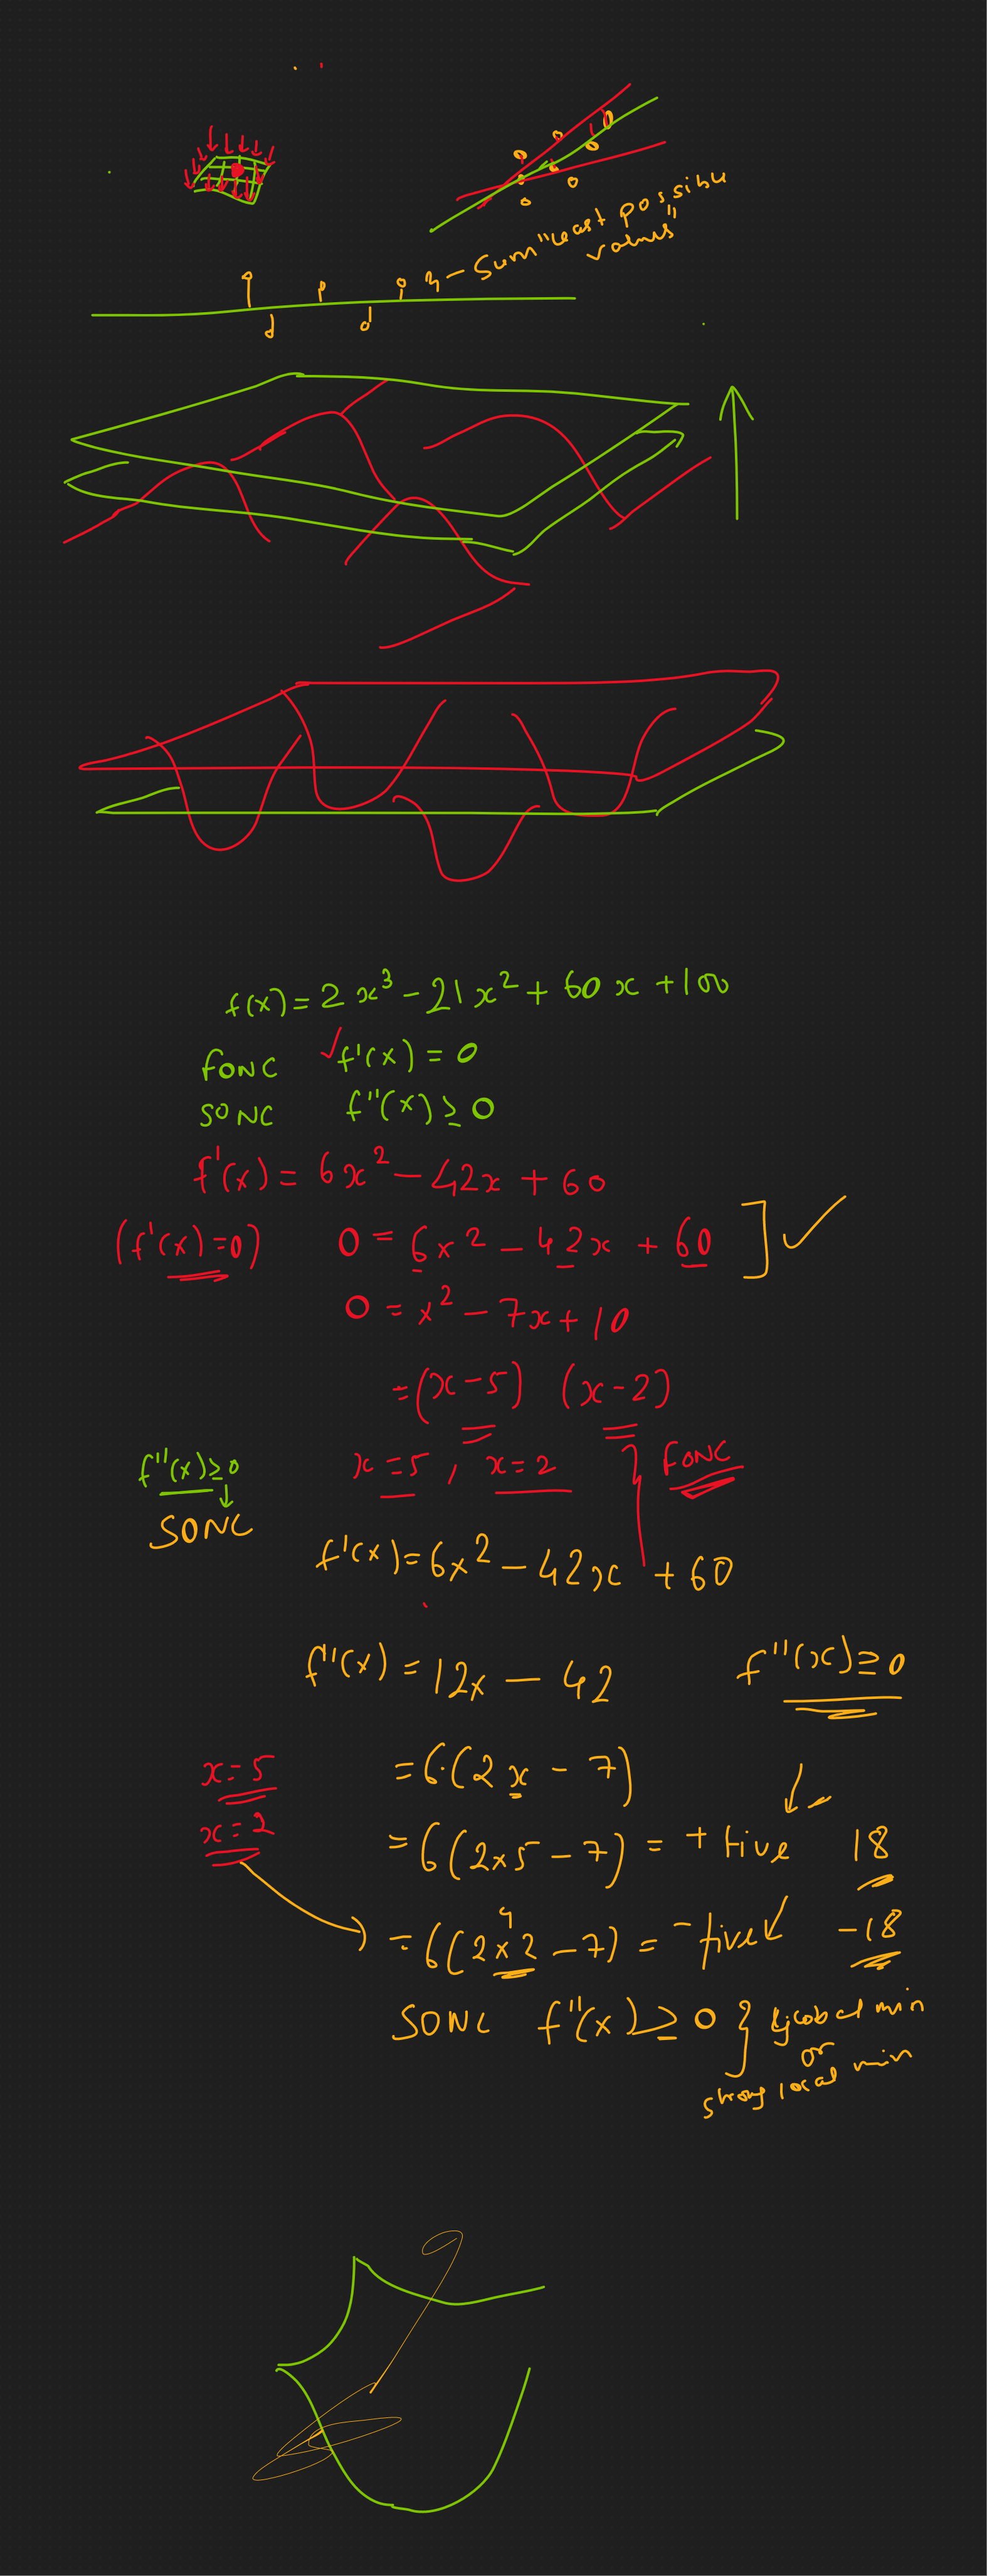 Sum "least possible
values"
f(x) = 2x³ - 21x² + 60x + 100
FONC ✓ f'(x) = 0
SONC f''(x) ≥ 0
f'(x) = 6x² - 42x + 60
(f'(x)=0) 0 = 6x² - 42x + 60 ] ✓
0 = x² - 7x + 10
= (x-5) (x-2)
x = 5 , x = 2 } FONC
f''(x) ≥ 0
↓
SONC
f'(x) = 6x² - 42x + 60
f''(x) = 12x - 42 f''(x) ≥ 0
x = 5 = 6·(2x - 7)
x = 2 = 6(2x5 - 7) = +tive 18
= 6(2x2 - 7) = -tive -18
4
SONC f''(x) ≥ 0 }
min
or
strong local min